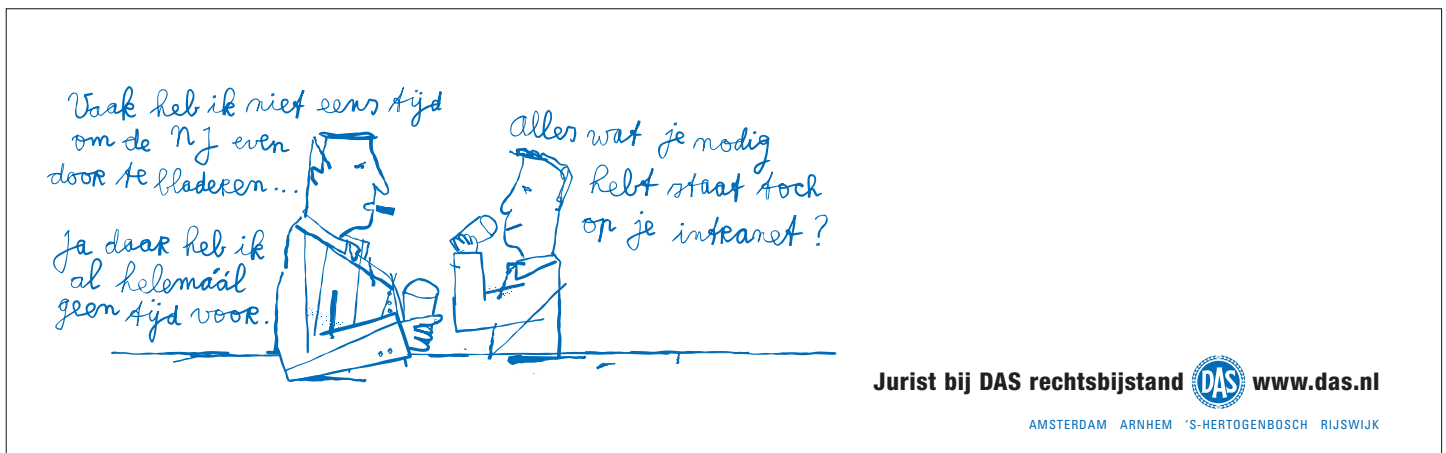 Vaak heb ik niet eens tijd
om de NJ even
door te bladeren...
alles wat je nodig
hebt staat toch
op je intranet?
Ja daar heb ik
al helemáál
geen tijd voor.
Jurist bij DAS rechtsbijstand DAS www.das.nl
AMSTERDAM ARNHEM 'S-HERTOGENBOSCH RIJSWIJK